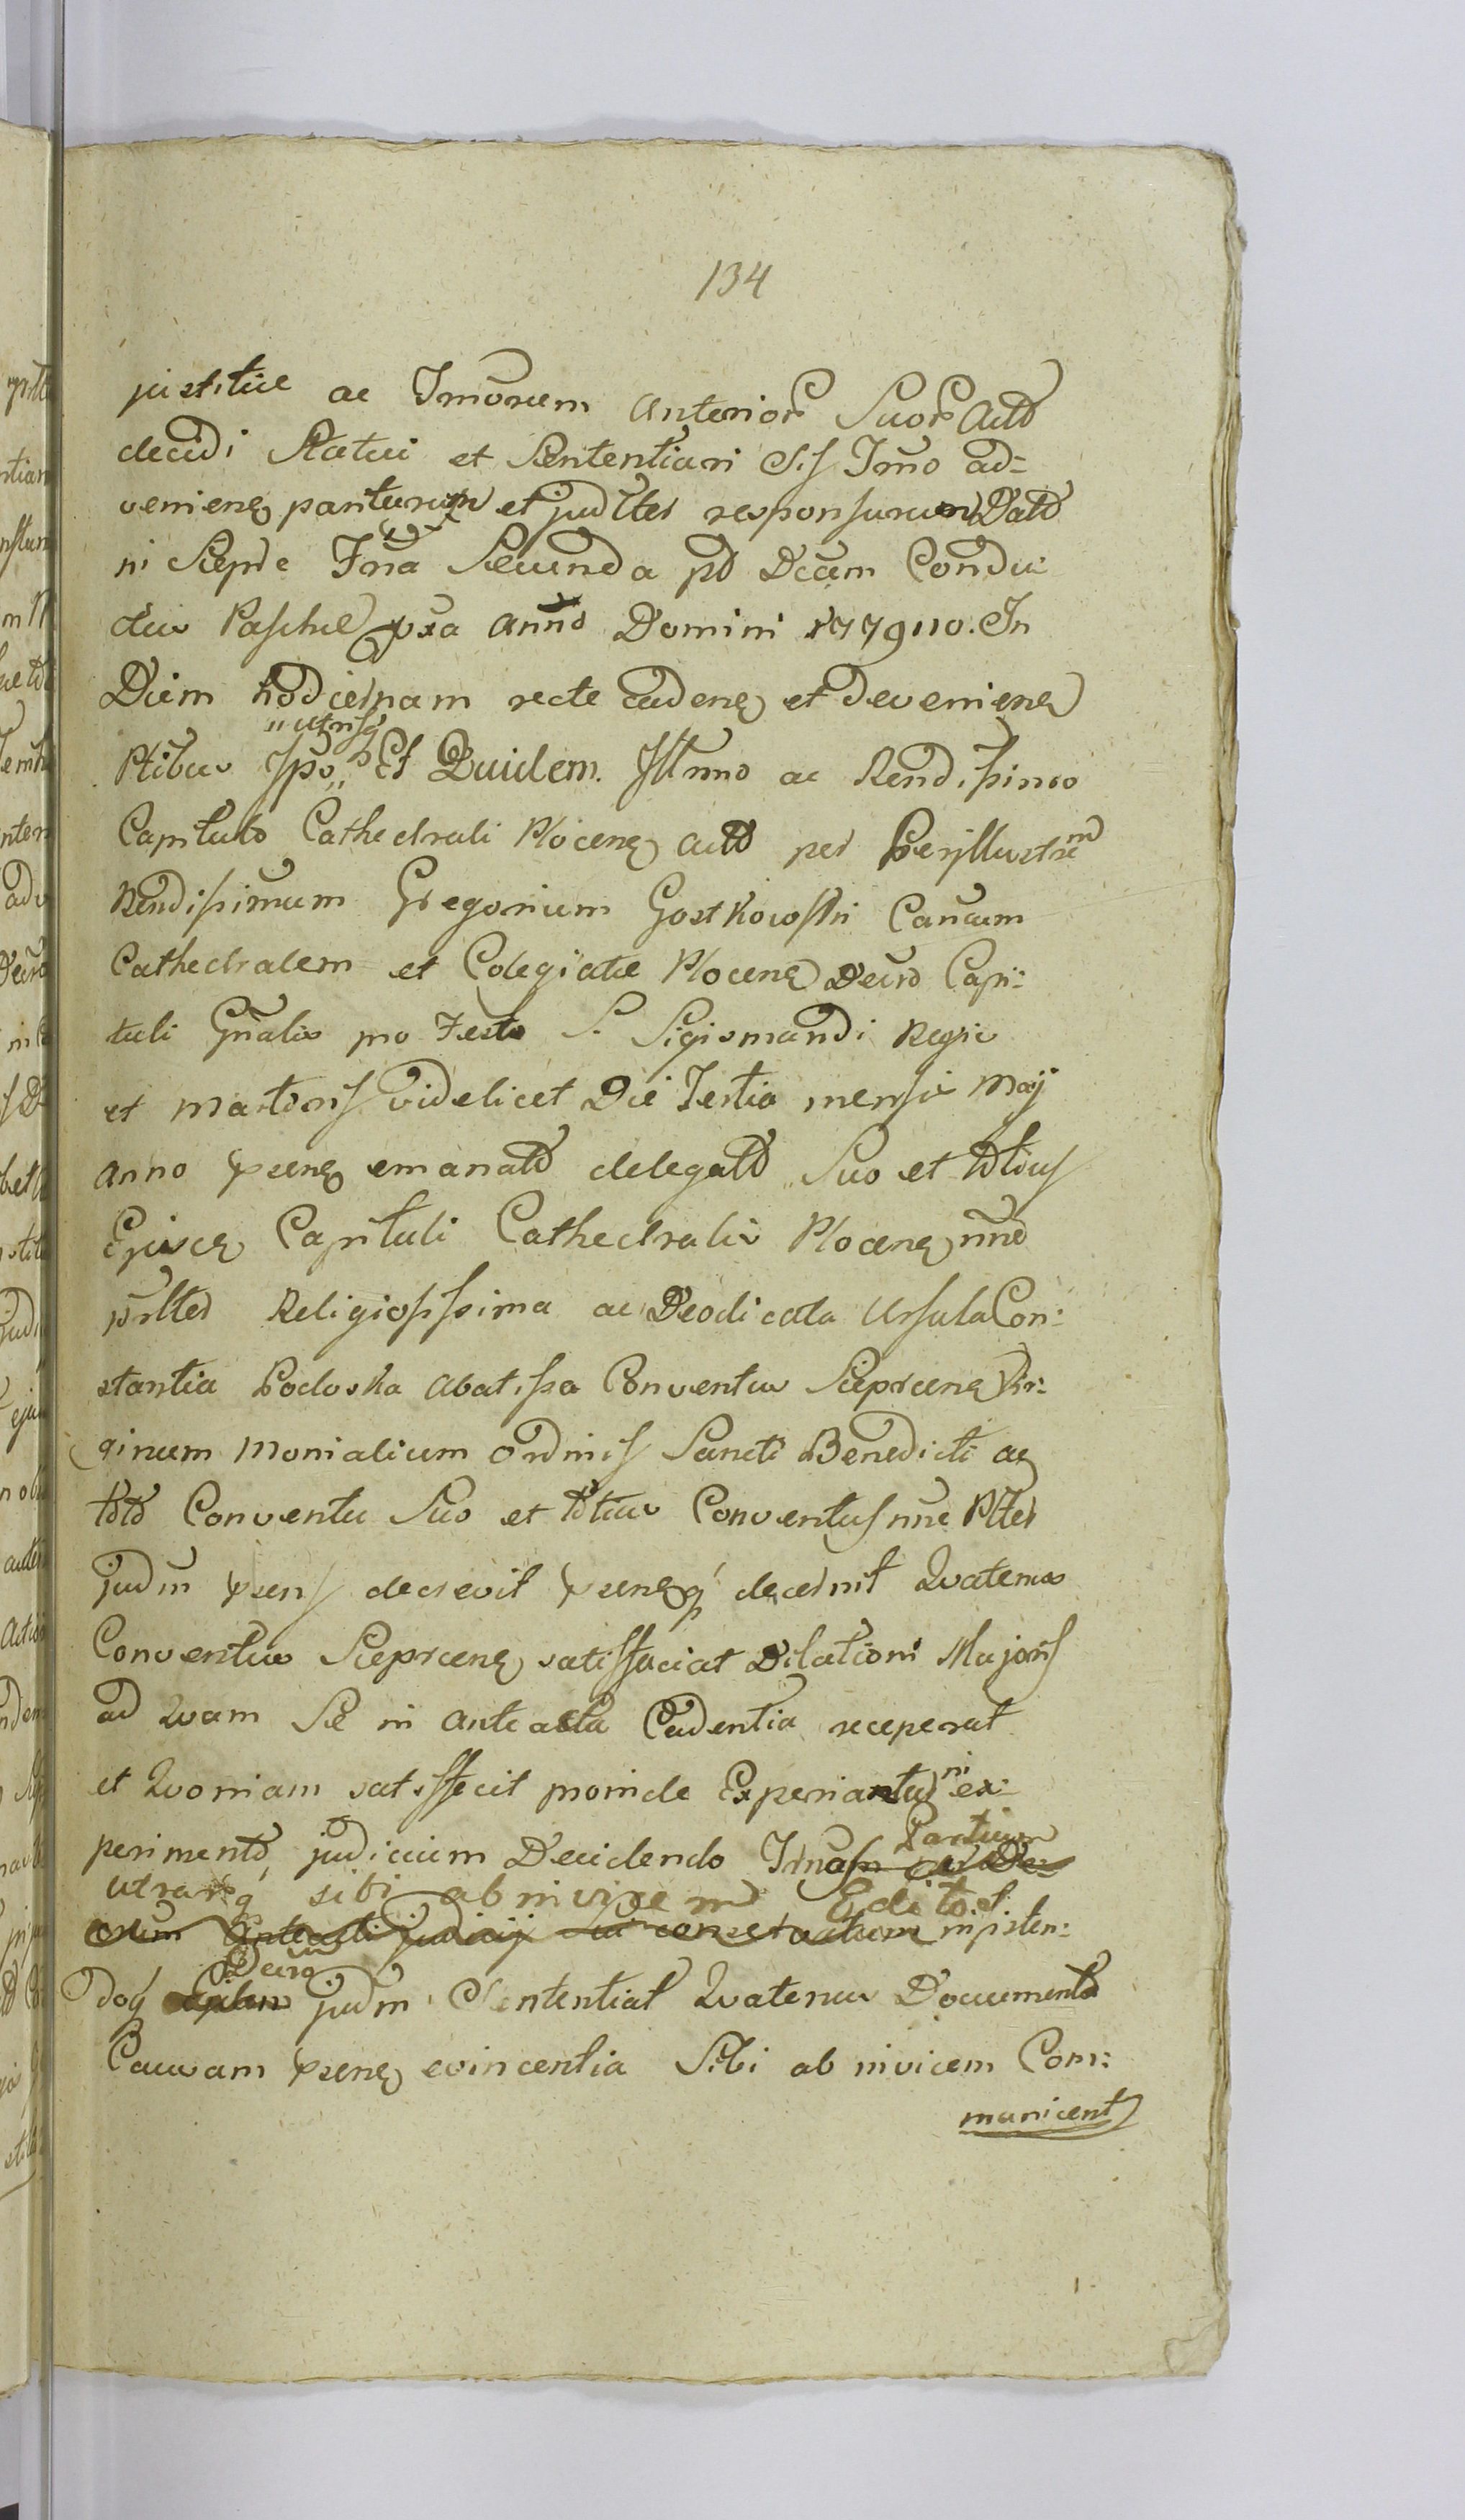 134
justitiæ ac Tmorum Anterior Suor Actt
decidi Statui et Sententiari Tmo ad-
venienq pariturum et judlter responsurum Datt
in Sierpc Fria Secunda pt Dcam Condu:
ctus Paschæ pxa Anno Domini 1779no. In
Diem hodiernam recte cadenq et devenienq
Ptibus Ipo,, ,,utrisq Et Quidem. Illmo ac Rendissimo
Capitulo Cathedrali Plocenq actt per Perjllustrem
Rendissimum Gregorium Gostkowski Canucum
Cathedralem et Colegiatæ Plocenq Decro Capi:
tuli Gnalis pro Festo S. Sigismundi Regis
et Martyris videlicet Die Tertia mensis Maij
Anno psenq emanatt delegatt Suo et ttius
Ejuscq Capituli Cathedralis Plocenq nne
prltes Religiosissima ac Deodicata Ursula Con:
stantia Podoska Abatissa Conventus Sieprcenq Vir:
ginum Monialium Ordinis Sancti Benedicti ac
totto Conventu Suo et ttius Conventus nne Ptter
judm psens decrevit psenqq decernit Quatenus
Conventus Sieprcenq satisfaciat Dilationi Majoris
ad Quam Se in anteacta Cadentia receperat
et Quoniam satisfecit proinde Experiantur in ex:
perimento judicium Decidendo Partium
utrarq sibi ab invicem Editos
Anteacti judicij conservatum insisten:
doq Decro judm Sententiat Quatenus Documenta
Causam psenq evincentia Sibi ab invicem Com:
municent